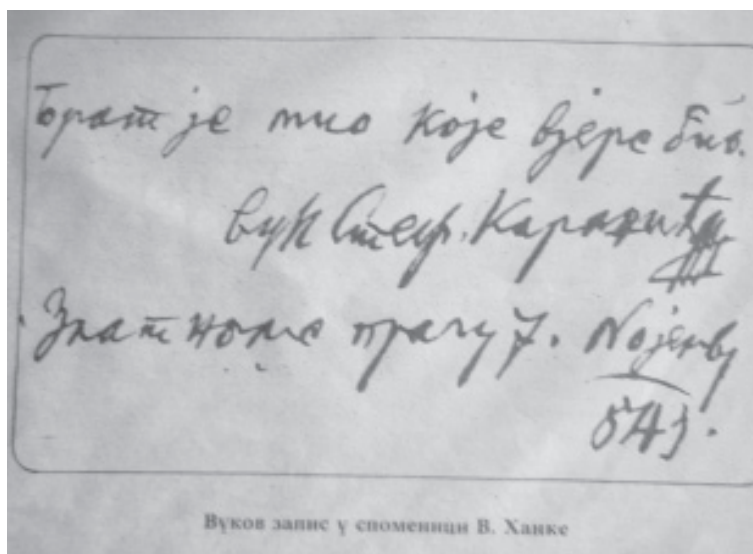 Брат је мио које вјере био.
Вук Стеф. Караџић
Златноме прагу 7. Nојемв
Вуков запис у споменици В. Ханке